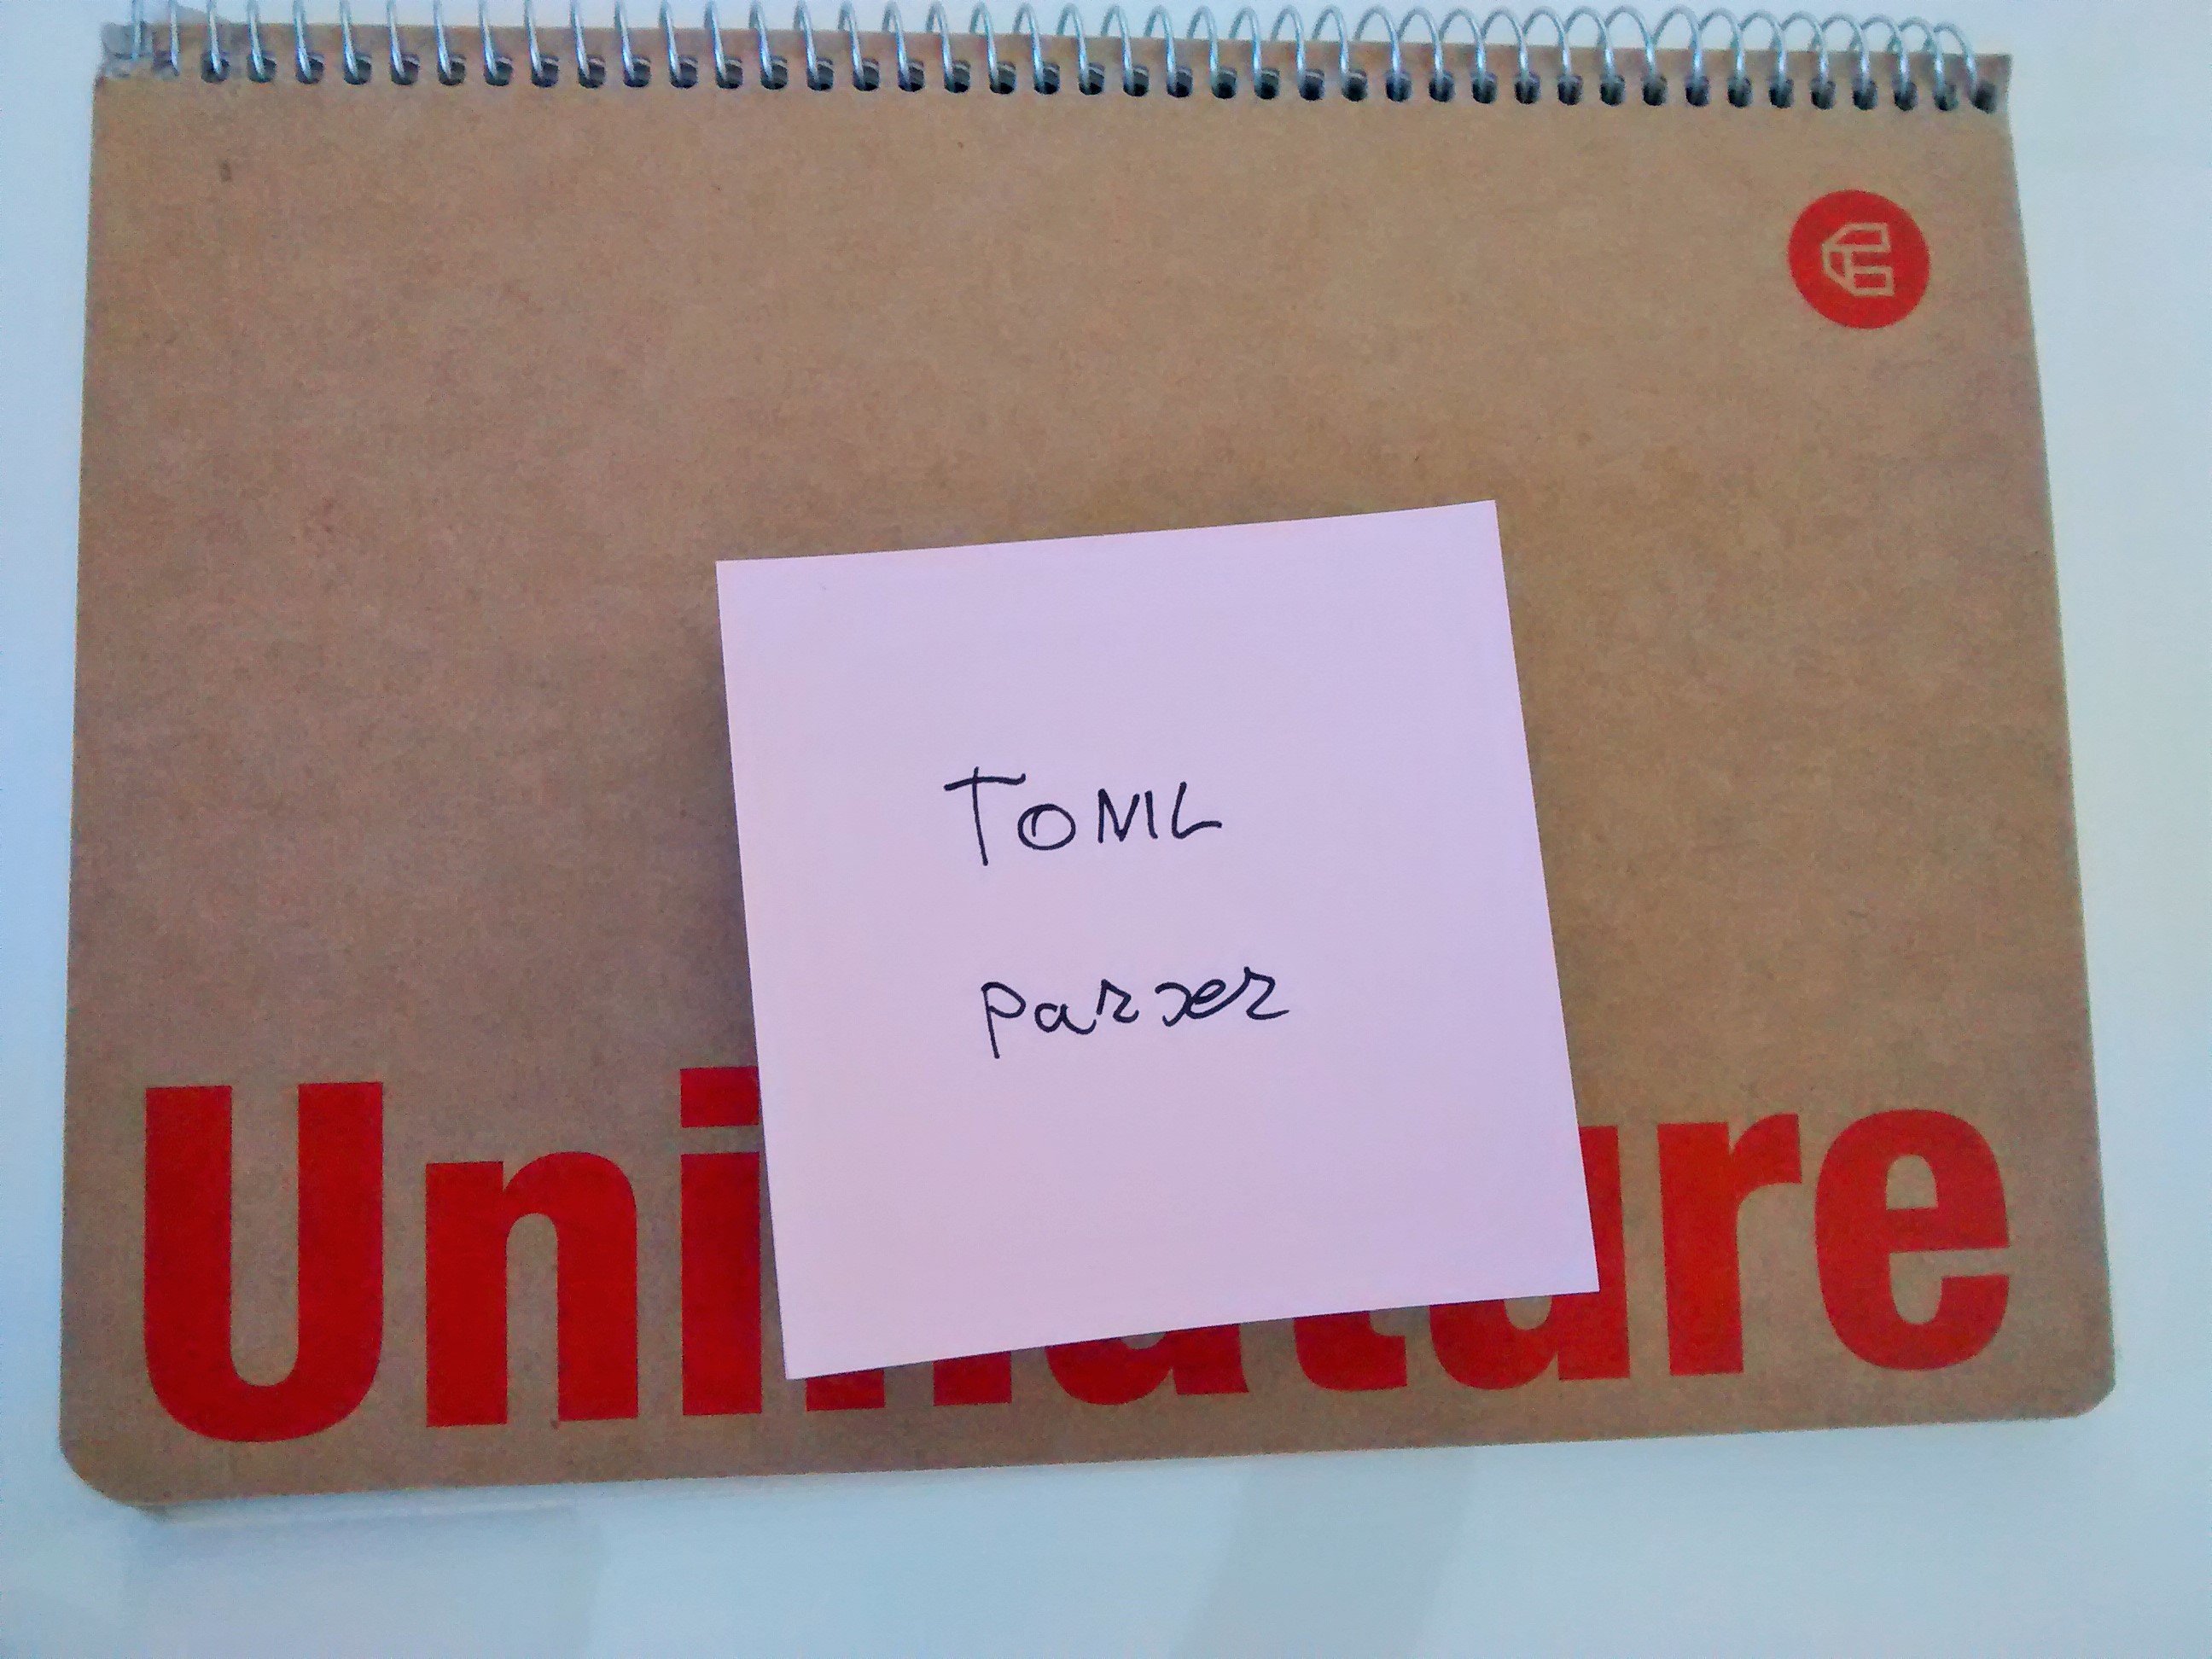 TOML
parser
Uninature